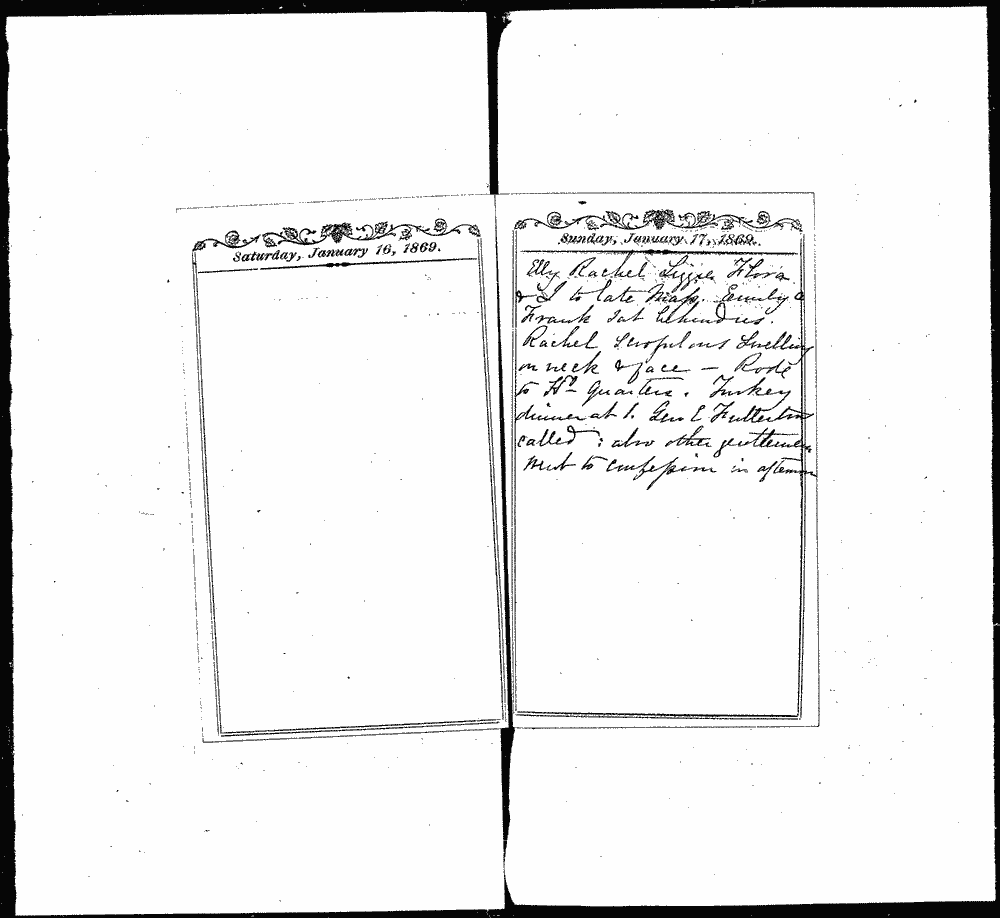 Saturday, January 16, 1869.
Sunday, January 17, 1869.
Elly Rachel Lizzie Flora
& I to late Mass. Emily &
Frank sat behind us.
Rachel scrofulous swelling
on neck & face — Rode
to Hd Quarters. Turkey
dinner at 1. Gen E Fullerton
called; also other gentlemen
Went to confession in afternoon